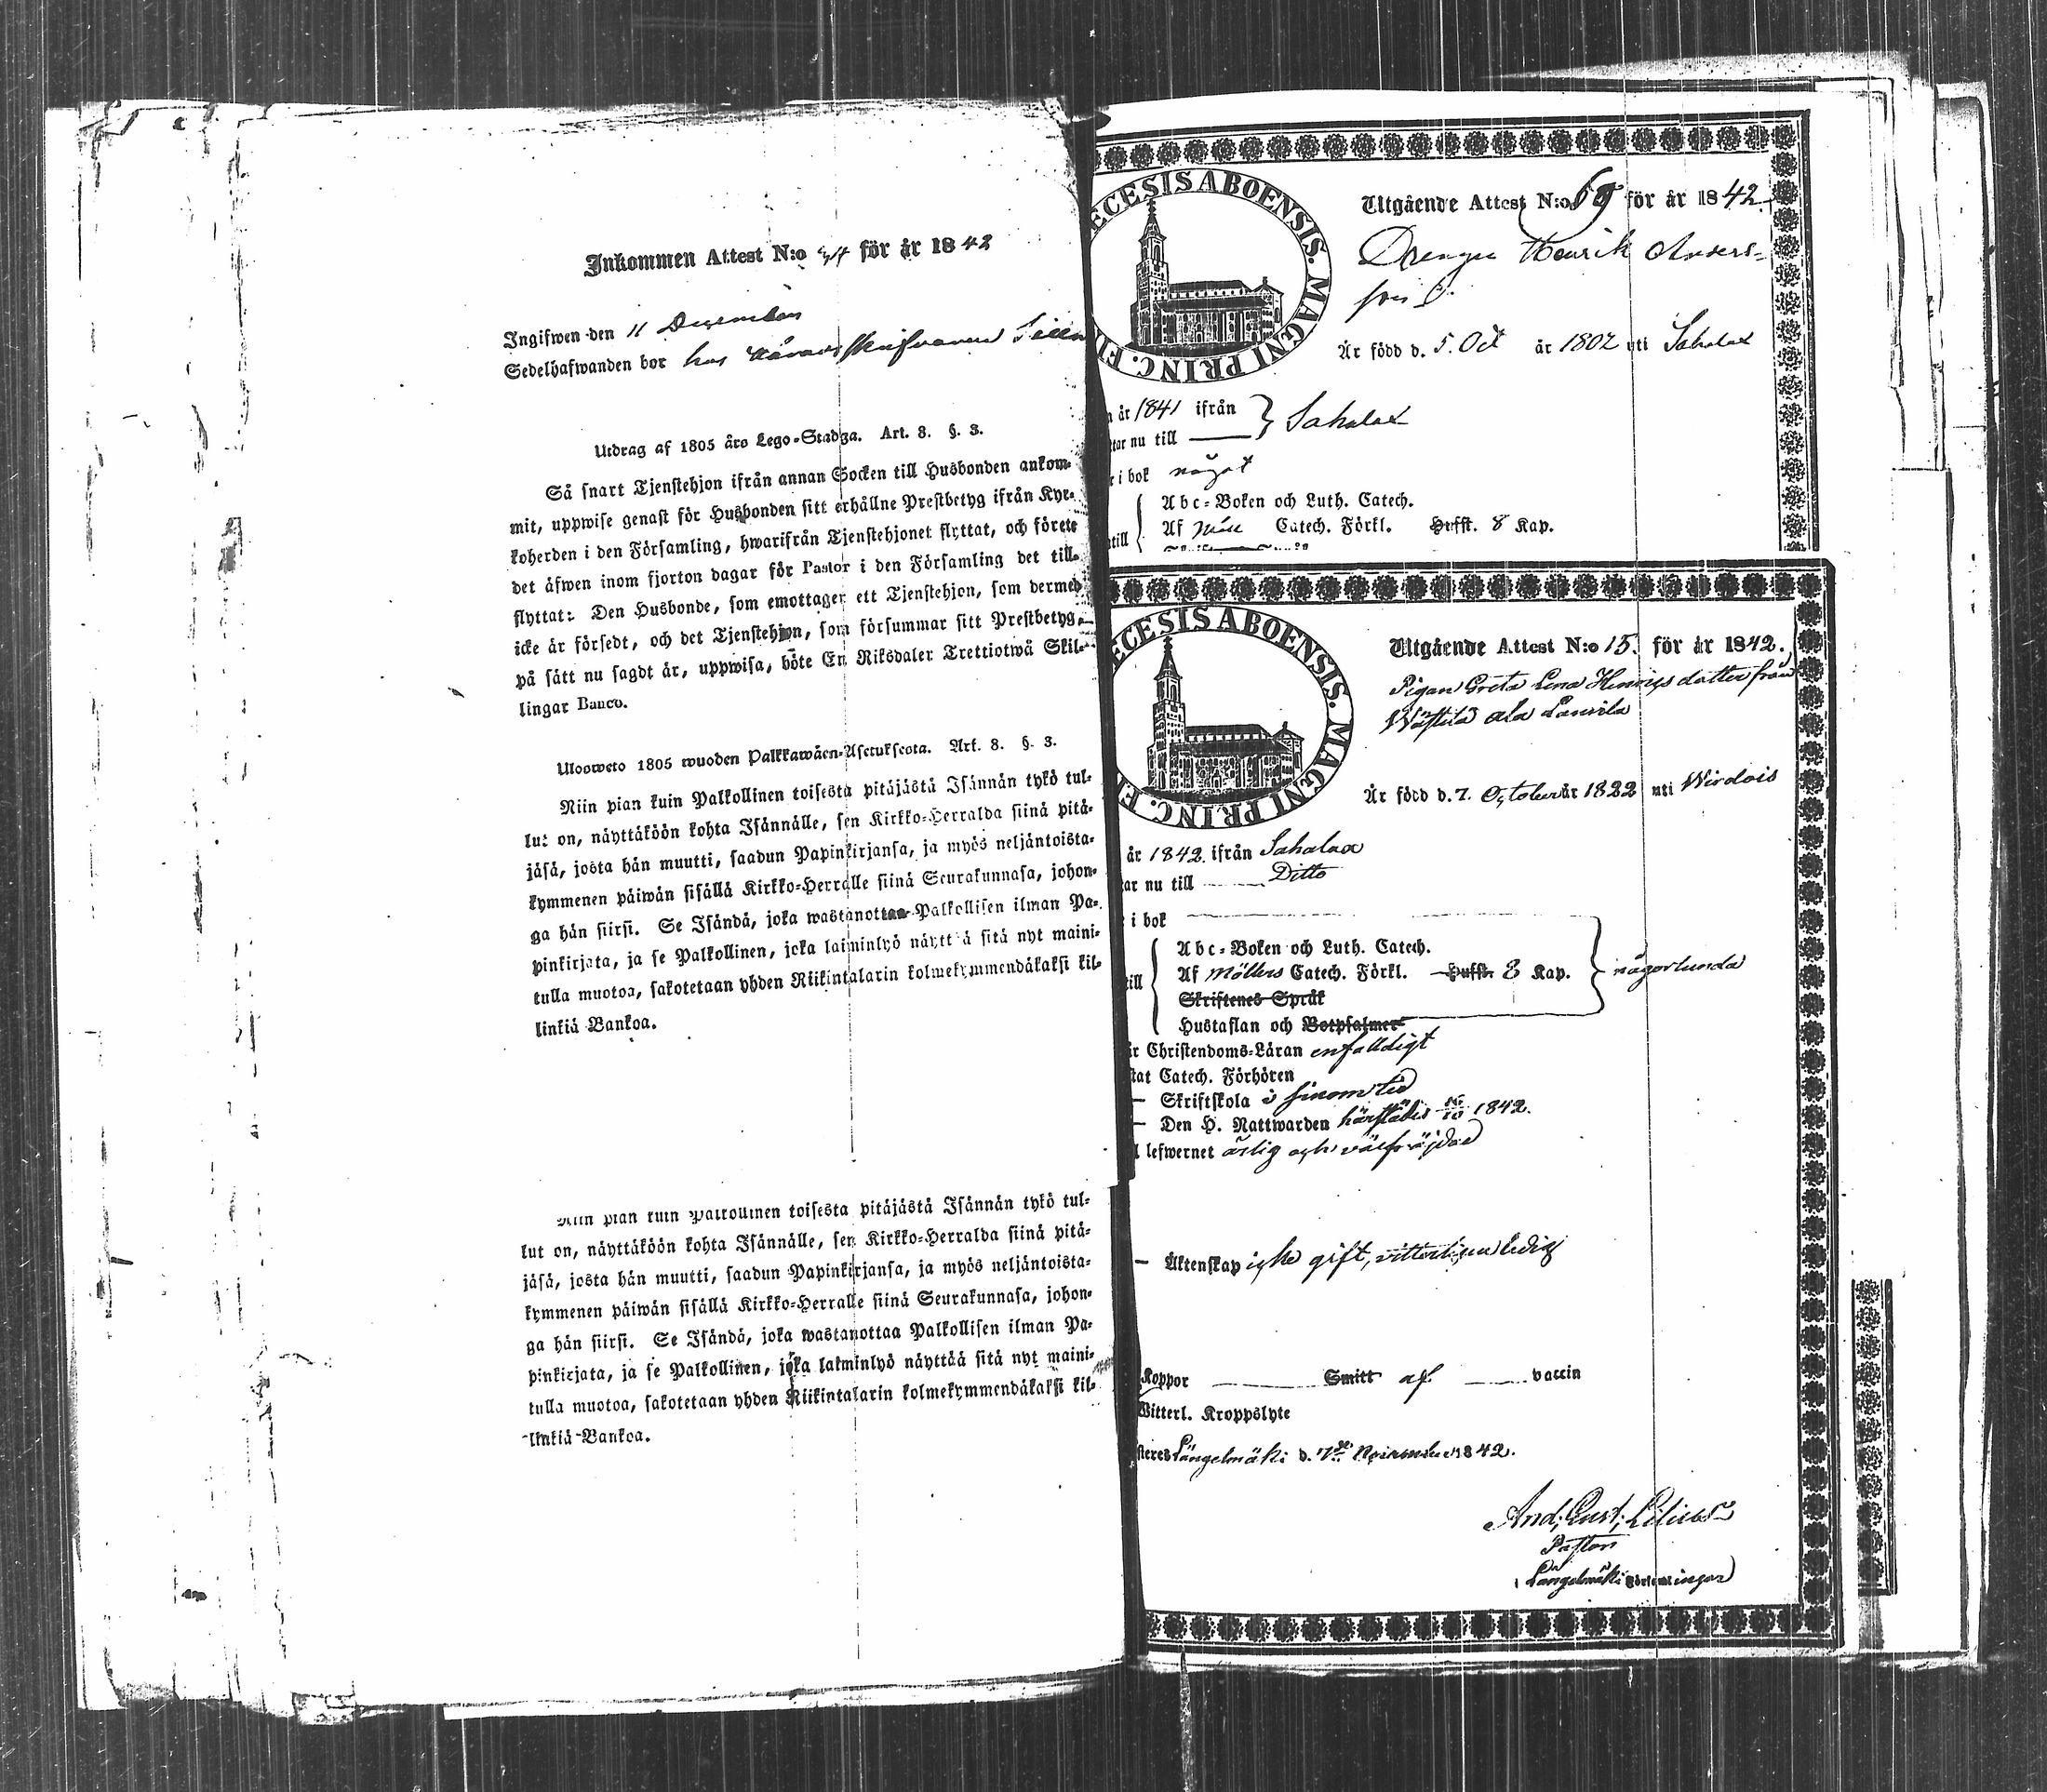 Inkommen Attest N:o för år 1842
Ingifwen den 11 December
Sedelhafwanden bor hos
Utdrag af 1805 års Lego-Stadga. Art. 8. §. 3.
Så snart Tjenstehjon ifrån annan Socken till Husbonden ankom-
mit, uppwise genast för Husbonden sitt erhållne Prestbetyg ifrån Kyr-
koherden i den Församling, hwarifrån Tjenstehjonet flyttat, och förete
det äfwen inom fjorton dagar för Pastor i den Församling det till-
flyttat: Den Husbonde, som emottager ett Tjenstehjon, som dermed
icke är försedt, och det Tjenstehjon, som försummar sitt Prestbetyg,
på sätt nu sagdt är, uppwisa, böte En Riksdaler Trettiotwå Skil-
lingar Banco.
Ulosweto 1805 wuoden Palkkawäen-Asetuksesta. Art. 8. §. 3.
Niin pian kuin Palkollinen toisesta pitäjästä Isännän tykö tul-
lut on, näyttäköön kohta Isännälle, sen Kirkko-Herralda siinä pitä-
jäsä, josta hän muutti, saadun Papinkirjansa, ja myös neljäntoista-
kymmenen päiwän sisällä Kirkko-Herralle siinä Seurakunnasa, johon-
ga hän siirsi. Se Isändä, joka wastanottaa Palkollisen ilman Pa-
pinkirjata, ja se Palkollinen, joka laiminlyö näyttää sitä nyt maini-
tulla muotoa, sakotetaan yhden Riikintalarin kolmekymmendäkaksi kil-
linkiä Bankoa.
Niin pian kuin Palkollinen toisesta pitäjästä Isännän tykö tul-
lut on, näyttäköön kohta Isännälle, sen Kirkko-Herralda siinä pitä-
jäsä, josta hän muutti, saadun Papinkirjansa, ja myös neljäntoista-
kymmenen päiwän sisällä Kirkko-Herralle siinä Seurakunnasa, johon-
ga hän siirsi. Se Isändä, joka wastanottaa Palkollisen ilman Pa-
pinkirjata, ja se Palkollinen, joka laiminlyö näyttää sitä nyt maini-
tulla muotoa, sakotetaan yhden Riikintalarin kolmekymmendäkaksi kil-
linkiä Bankoa.
ECESIS ABOENSIS. MAGNI PRINC. FI
Utgående Attest N:o 69 för år 1842
Drengen Henrik Anders-
son
Är född d. 5. Oct år 1802 uti Sahalax
år 1841 ifrån
tar nu till Sahalax
i bok något
Abc-Boken och Luth. Catech.
till Af Möll Catech. Förkl. Hufst. 8 Kap.
ECESIS ABOENSIS. MAGNI PRINC. FI
Utgående Attest N:o 15. för år 1842.
Pigan Greta Lena Henrigsdotter från
Wästilä ala Laurila
Är född d. 7. October år 1822 uti Wirdois
år 1842. ifrån Sahalax
ar nu till Ditto
i bok
Abc-Boken och Luth. Catech.
till Af Möllers Catech. Förkl. Hufst. 8 Kap. någorlunda
Skriftenes Språk
Hustaflan och Botpsalmer
är Christendoms-Läran enfalldigt
stat Catech. Förhören
— Skriftskola i sinom tid
— Den H. Nattwarden härstädes 16/10 1842.
l lefwernet ärlig och välfräjdad
— Äktenskap icke gift, vitterligen ledig
Koppor Smitt af vaccin
Witterl. Kroppslyte
steres Längelmäki d. 7de November 1842.
And. Gust. Lilius
Pastor
i Längelmäki Församlingar